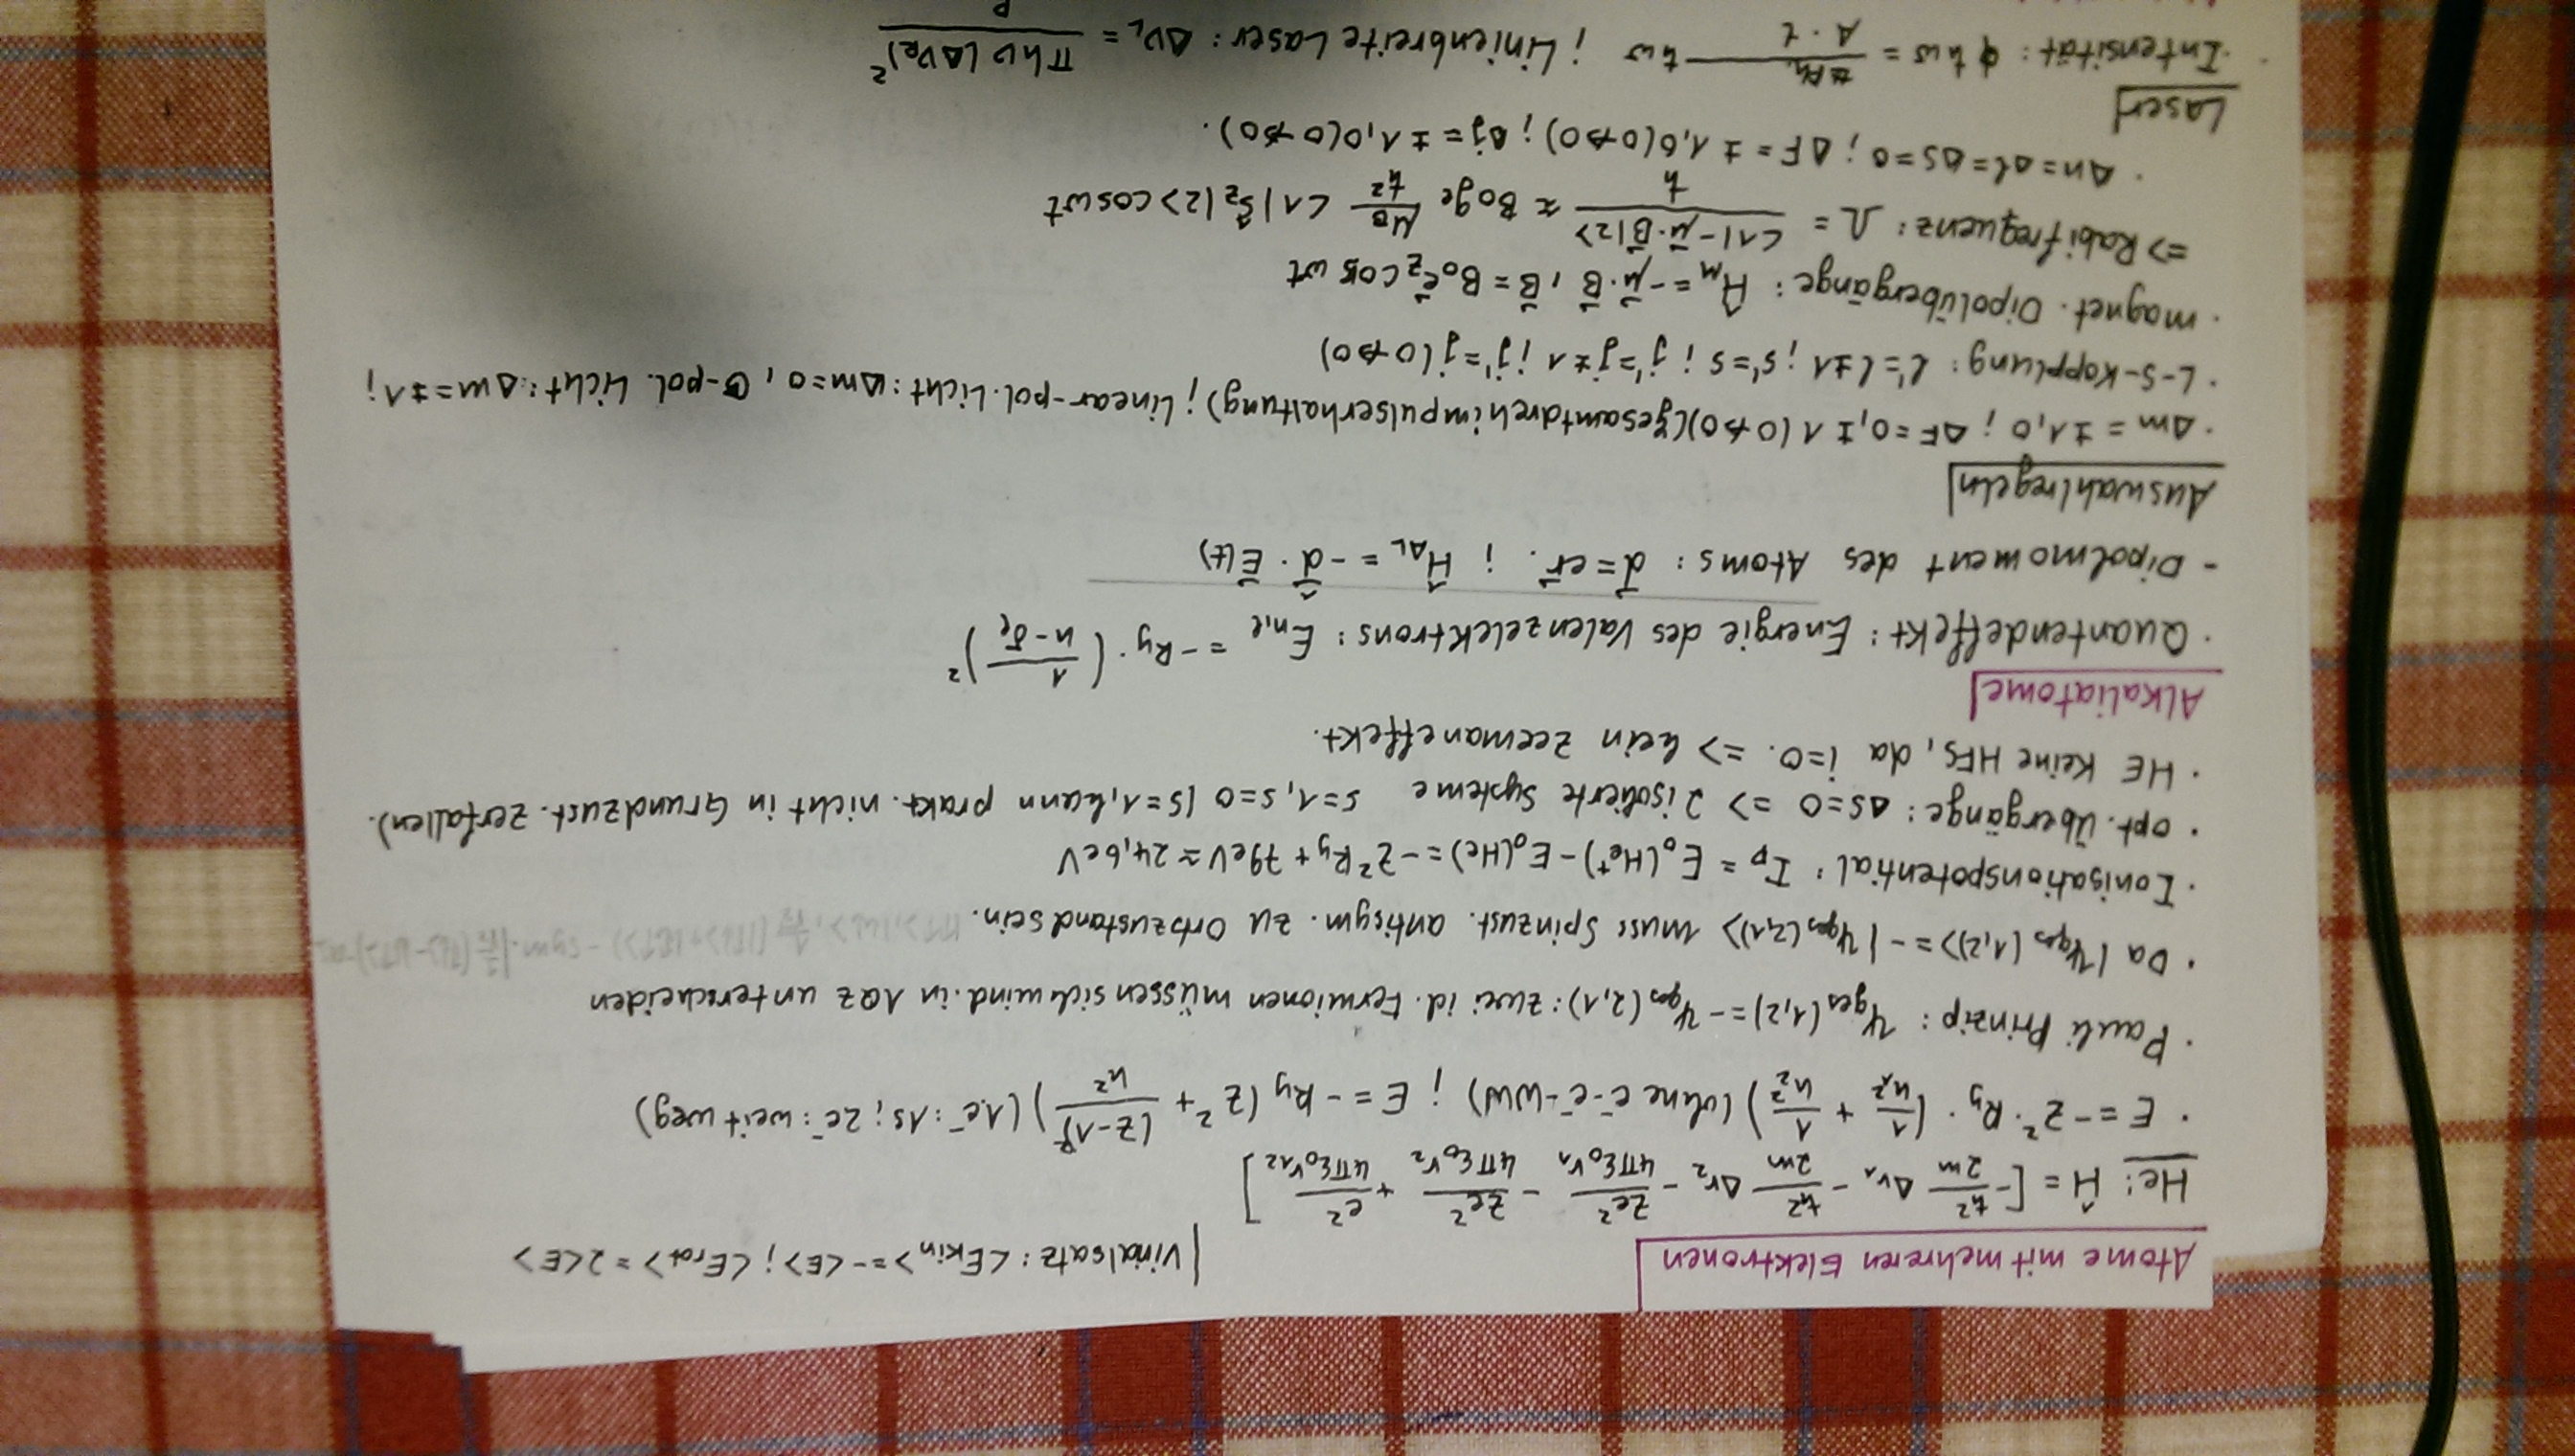 Atome mit mehreren Elektronen | Virialsatz: <E_kin> = -<E>; <E_Pot> = 2<E>
He: Ĥ = [-ħ²/2m Δr₁ - ħ²/2m Δr₂ - Ze²/4πε₀r₁ - Ze²/4πε₀r₂ + e²/4πε₀r₁₂]
· E = -Z²·Ry·(1/n₁² + 1/n₂²) (ohne e⁻-e⁻-WW) ; E = -Ry (Z² + (Z-1)²/n²) (1e⁻: 1s; 2e⁻: weit weg)
· Pauli Prinzip: Ψges(1,2) = -Ψges(2,1): zwei id. Fermionen müssen sich mind. in 1QZ unterscheiden
· Da |Ψges(1,2)> = -|Ψges(2,1)> muss Spinzust. antisym. zu Ortszustand sein.
· Ionisationspotential: I_p = E₀(He⁺) - E₀(He) = -Z²Ry + 79eV ≈ 24,6eV
· opt. Übergänge: Δs=0 => 2 isolierte Systeme s=1, s=0 (s=1, kann prakt. nicht in Grundzust. zerfallen).
· HE keine HFS, da i=0. => kein Zeemaneffekt.
Alkaliatome
· Quantendeffekt: Energie des Valenzelektrons: E_n,l = -Ry·(1/(n-δ_l))²
- Dipolmoment des Atoms: d⃗ = er⃗. ; Ĥ_AL = -d⃗̂ · E⃗(t)
Auswahlregeln
· Δm = ±1,0 ; ΔF = 0,±1 (0↛0) (Gesamtdrehimpulserhaltung) ; linear-pol. Licht: Δm=0, σ-pol. Licht: Δm=±1;
· L-S-Kopplung: l'=l±1 ; s'=s ; j'=j±1 ; j'=j (0↛0)
· magnet. Dipolübergänge: Ĥ_M = -μ⃗·B⃗, B⃗ = B₀e⃗_z cos ωt
=> Rabifrequenz: Ω = <1|-μ⃗·B⃗|2>/ħ ≈ B₀ge μ_B/ħ² <1|Ŝ_z|2> cosωt
· Δn=Δl=Δs=0 ; ΔF = ±1,0 (0↛0) ; Δj = ±1,0 (0↛0).
Laser
· Intensität: ϕħω = #Ph./A·t ħω ; Linienbreite Laser: Δν_L = πhν(Δν_R)²/P